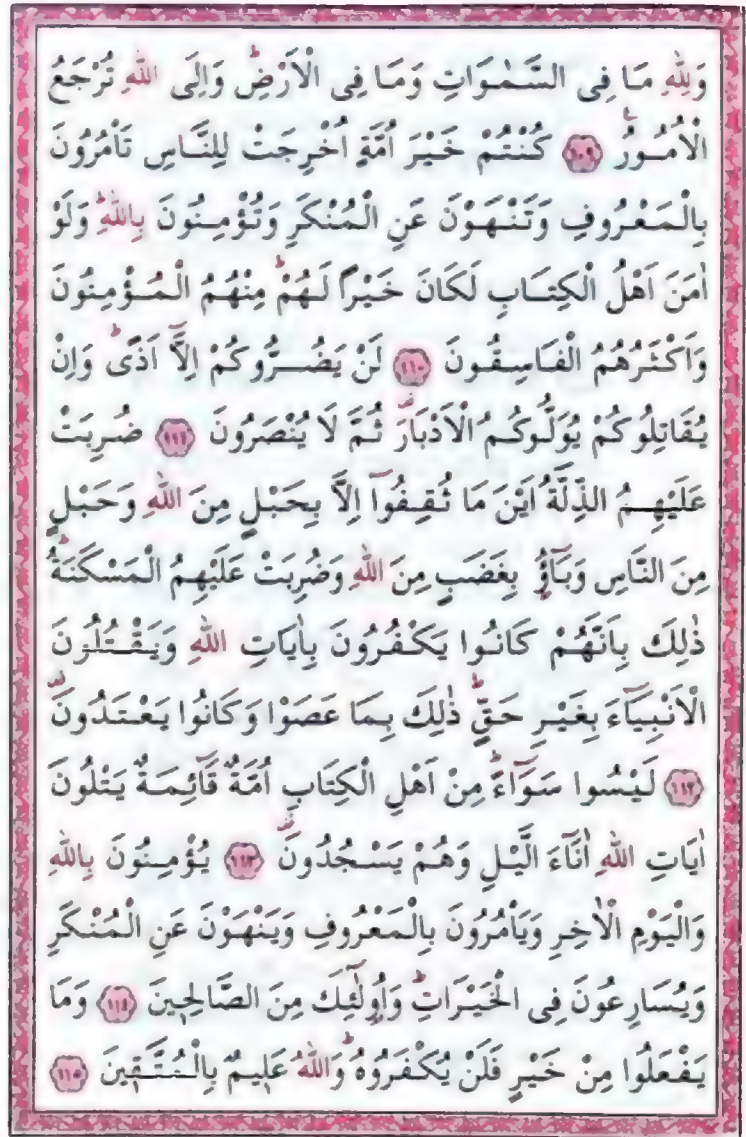 وَلِلّٰهِ مَا فِى السَّمٰوَاتِ وَمَا فِى الْاَرْضِۜ وَاِلَى اللّٰهِ تُرْجَعُ
الْاُمُورُ۟ ﴿١٠٩﴾ كُنْتُمْ خَيْرَ اُمَّةٍ اُخْرِجَتْ لِلنَّاسِ تَأْمُرُونَ
بِالْمَعْرُوفِ وَتَنْهَوْنَ عَنِ الْمُنْكَرِ وَتُؤْمِنُونَ بِاللّٰهِۜ وَلَوْ
اٰمَنَ اَهْلُ الْكِتَابِ لَكَانَ خَيْرًا لَهُمْۜ مِنْهُمُ الْمُؤْمِنُونَ
وَاَكْثَرُهُمُ الْفَاسِقُونَ ﴿١١٠﴾ لَنْ يَضُرُّوكُمْ اِلَّٓا اَذًىۜ وَاِنْ
يُقَاتِلُوكُمْ يُوَلُّوكُمُ الْاَدْبَارَ۠ ثُمَّ لَا يُنْصَرُونَ ﴿١١١﴾ ضُرِبَتْ
عَلَيْهِمُ الذِّلَّةُ اَيْنَ مَا ثُقِفُٓوا اِلَّا بِحَبْلٍ مِنَ اللّٰهِ وَحَبْلٍ
مِنَ النَّاسِ وَبَٓاؤُ۫ بِغَضَبٍ مِنَ اللّٰهِ وَضُرِبَتْ عَلَيْهِمُ الْمَسْكَنَةُۜ
ذٰلِكَ بِاَنَّهُمْ كَانُوا يَكْفُرُونَ بِاٰيَاتِ اللّٰهِ وَيَقْتُلُونَ
الْاَنْبِيَٓاءَ بِغَيْرِ حَقٍّۜ ذٰلِكَ بِمَا عَصَوْا وَكَانُوا يَعْتَدُونَ۠
﴿١١٢﴾ لَيْسُوا سَوَٓاءًۜ مِنْ اَهْلِ الْكِتَابِ اُمَّةٌ قَٓائِمَةٌ يَتْلُونَ
اٰيَاتِ اللّٰهِ اٰنَٓاءَ الَّيْلِ وَهُمْ يَسْجُدُونَ۠ ﴿١١٣﴾ يُؤْمِنُونَ بِاللّٰهِ
وَالْيَوْمِ الْاٰخِرِ وَيَأْمُرُونَ بِالْمَعْرُوفِ وَيَنْهَوْنَ عَنِ الْمُنْكَرِ
وَيُسَارِعُونَ فِى الْخَيْرَاتِۜ وَاُو۬لٰٓئِكَ مِنَ الصَّالِح۪ينَ ﴿١١٤﴾ وَمَا
يَفْعَلُوا مِنْ خَيْرٍ فَلَنْ يُكْفَرُوهُۜ وَاللّٰهُ عَل۪يمٌ بِالْمُتَّق۪ينَ ﴿١١٥﴾